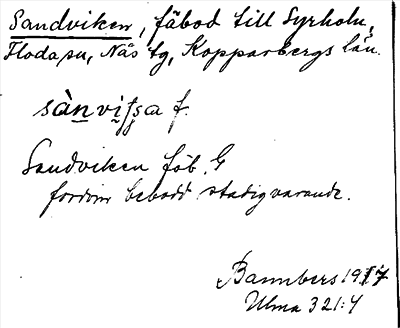 Sandviken, fäbod till Syrholn,
Floda sn, Nås tg, Kopparbergs län.
sànvi̯tʂa f.
Sandviken fäb. G
fordom bebodd stadigvarande.
Bannbers 1917
Ulma 321:4